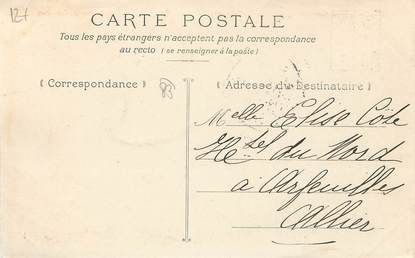 12f
CARTE POSTALE
Tous les pays étrangers n'acceptent pas la correspondance
au recto (se renseigner à la poste)
Correspondance
83
Adresse du Destinataire
Melle Elise Côte
Hsel du Nord
à Arfeuilles
Allier